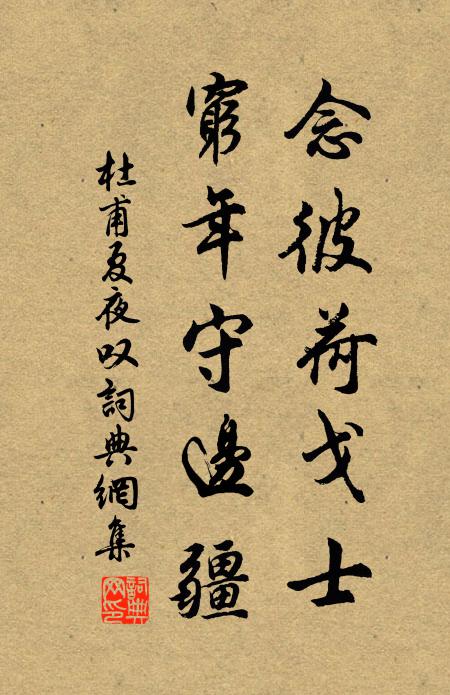 念彼荷戈士
窮年守邊疆
杜甫夏夜叹詞典網集
詞典网印